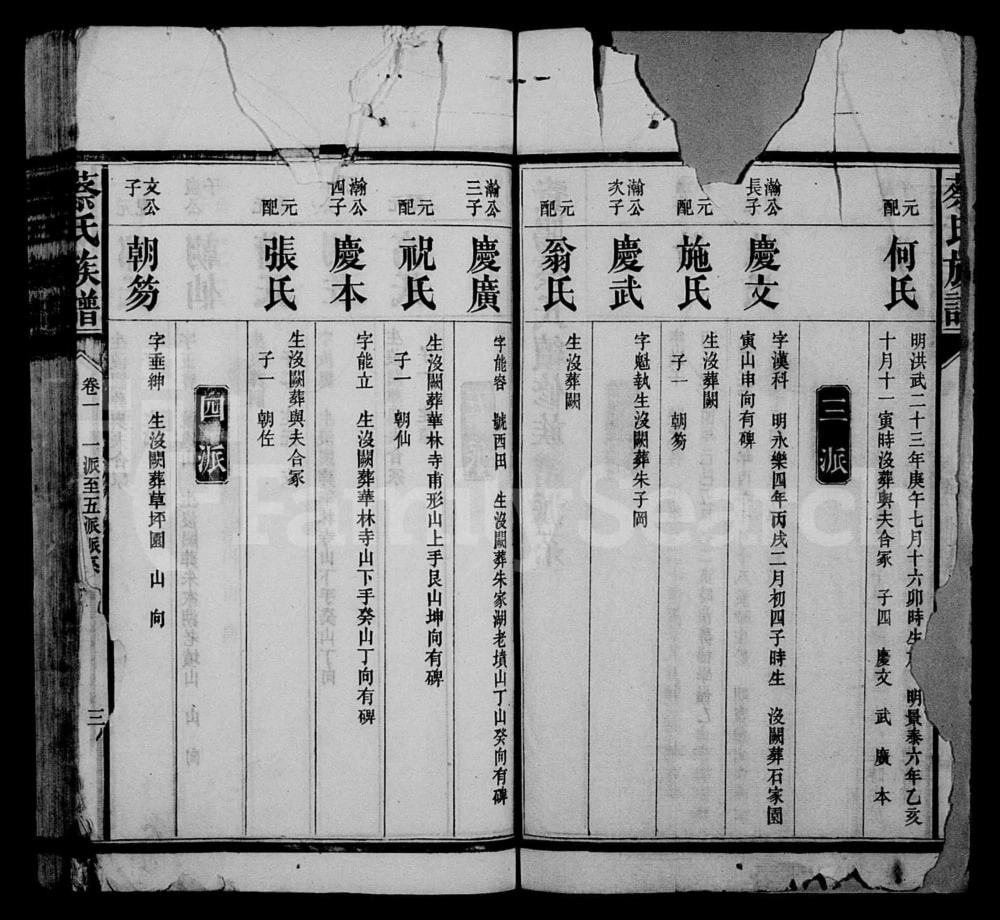 蔡氏族譜
元配
何氏
明洪武二十三年庚午七月十六卯時生
明景泰六年乙亥
十月十一寅時沒葬與夫合冢 子四 慶文 武 廣 本
三派
瀚公長子
慶文
字漢科 明永樂四年丙戌二月初四子時生 沒闕葬石家園
寅山申向有碑
元配
施氏
生沒葬闕
子一 朝笏
瀚公次子
慶武
字魁執生沒闕葬朱子岡
元配
翁氏
生沒葬闕
瀚公三子
慶廣
字能容 號西田 生沒闕葬朱家湖老墳山丁山癸向有碑
元配
祝氏
生沒闕葬華林寺甫形山上手艮山坤向有碑
子一 朝仙
瀚公四子
慶本
字能立 生沒闕葬華林寺山下手癸山丁向有碑
元配
張氏
生沒闕葬與夫合冢
子一 朝佐
四派
文公子
朝笏
字垂紳 生沒闕葬草坪園 山 向
蔡氏族譜
卷一 一派至五派派系
三
FamilySearch